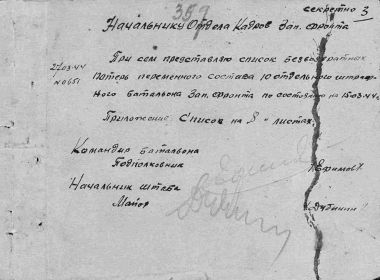 секретно 3
359
Начальнику Отдела Кадров Зап. Фронта
27.03.44
№ 0651
При сем представляю список безвозвратных
потерь переменного состава 10 отдельного штраф-
ного батальона Зап. Фронта по состоянию на 15.03.44г.
Приложение: Список на 8 листах.
Командир батальона
Подполковник
/Ефимов/
Начальник штаба
Майор
/Дубинин/